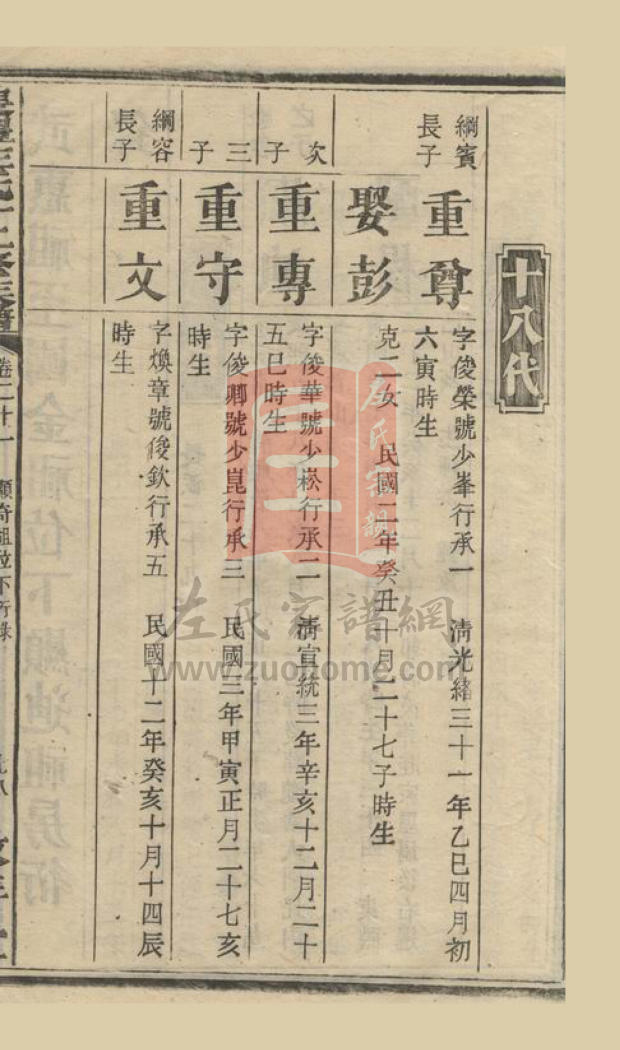 十八代
綱賓
長子
重尊
字俊榮號少峯行承一 清光緒三十一年乙巳四月初
六寅時生
娶彭
克二女 民國二年癸丑十月二十七子時生
次子
重專
字俊華號少崧行承二 清宣統三年辛亥十二月二十
五巳時生
三子
重守
字俊卿號少崑行承三 民國三年甲寅正月二十七亥
時生
綱容
長子
重文
字煥章號俊欽行承五 民國十二年癸亥十月十四辰
時生
卷二十一
顯奇祖位下行錄
左氏宗譜網
www.zuohome.com